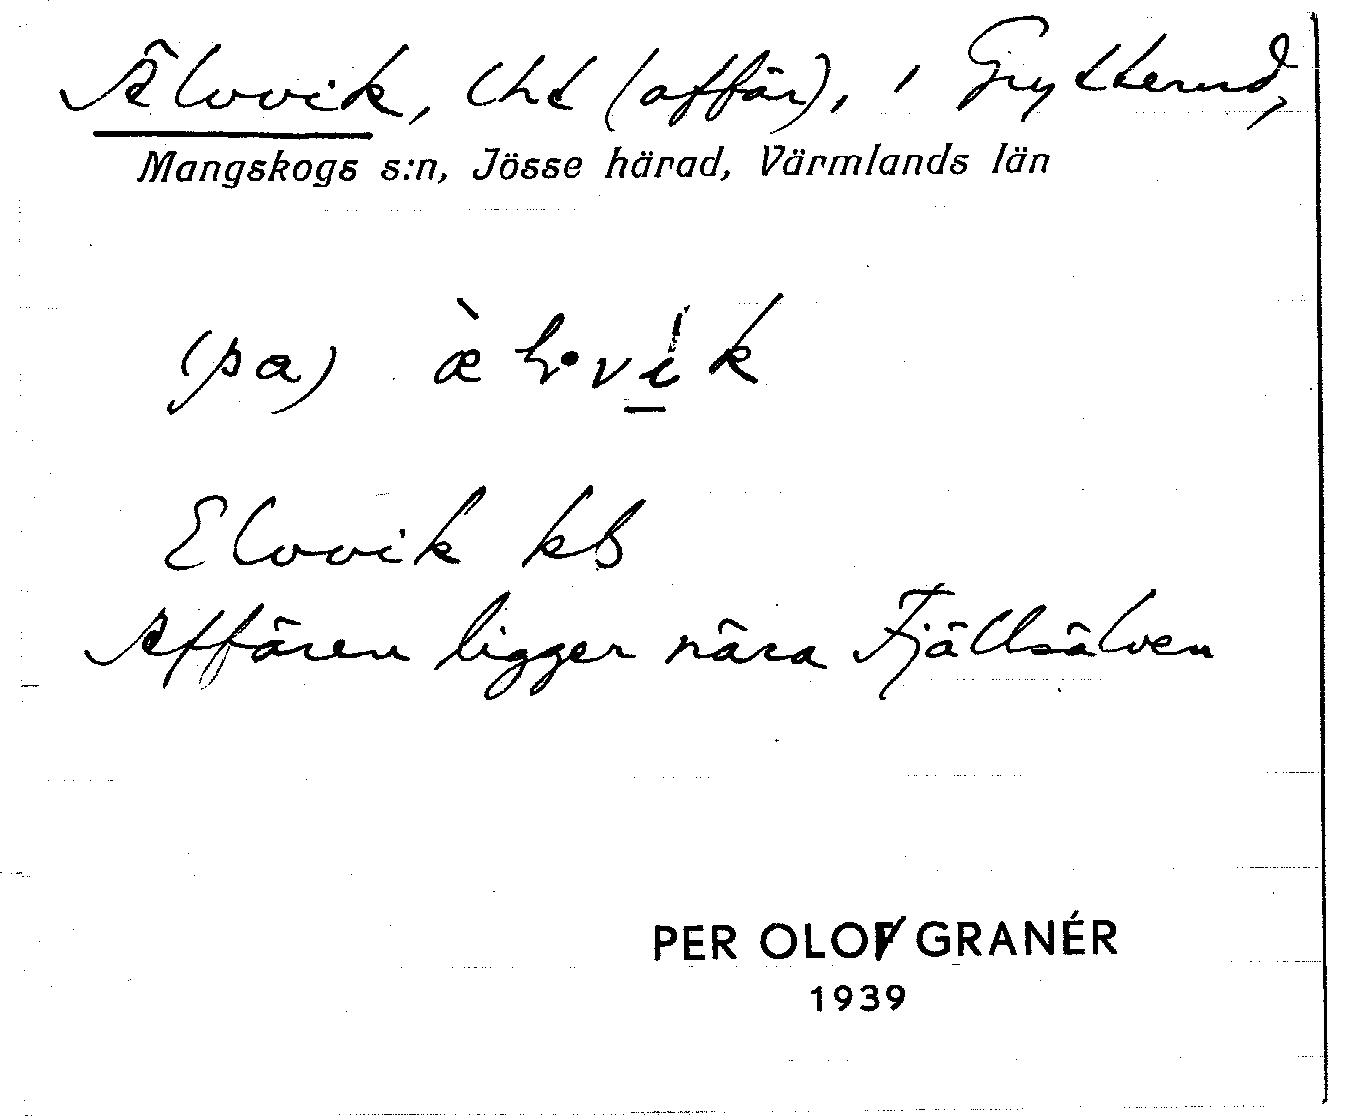 Älvvik, lht (affär), i Grytterud,
Mangskogs s:n, Jösse härad, Värmlands län
(pa)
Elvvik kb
Affären ligger nära Fjällsälven
PER OLOF GRANÉR
1939